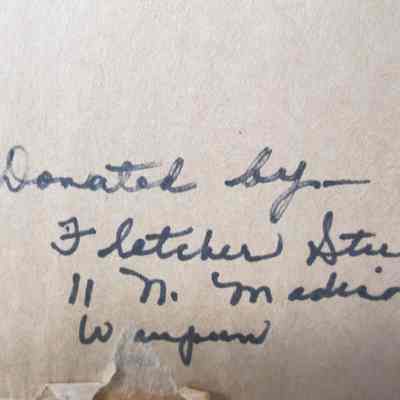 Donated by—
Fletcher Stee
11 N. Madiso
Waupun